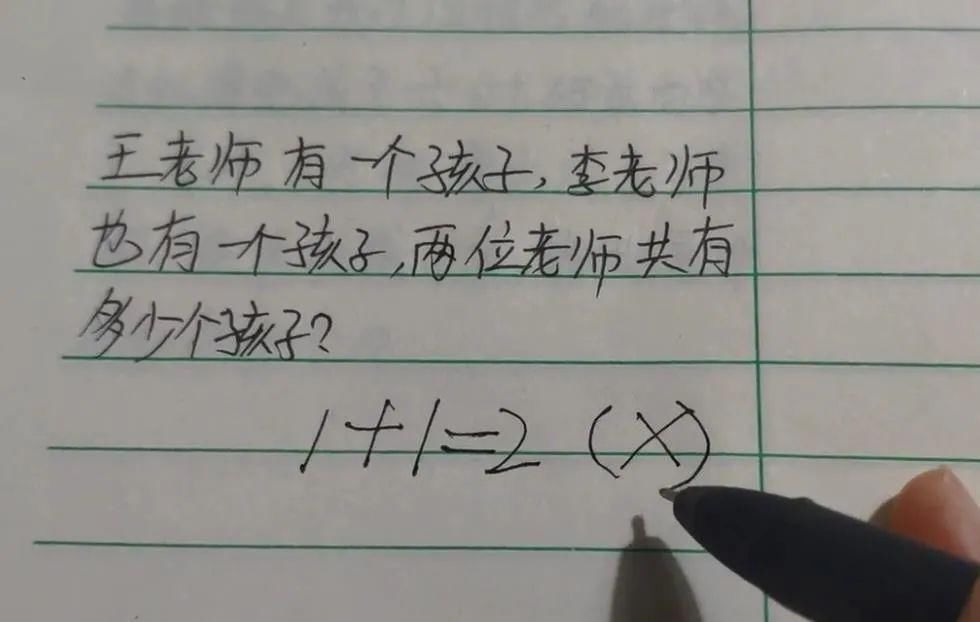 王老师有一个孩子,李老师
也有一个孩子,两位老师共有
多少个孩子?
1+1=2 (×)